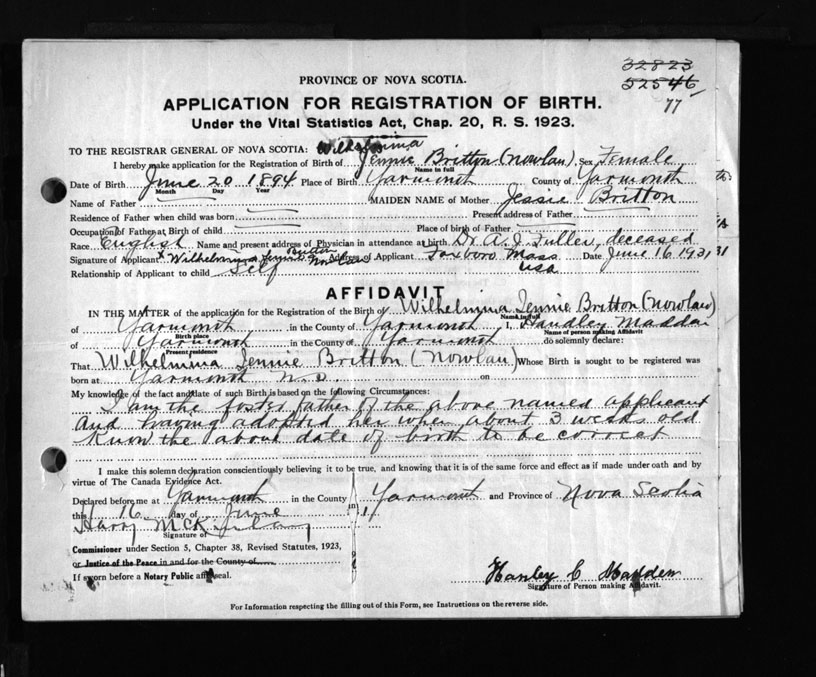 32823
52546
77
PROVINCE OF NOVA SCOTIA.
APPLICATION FOR REGISTRATION OF BIRTH.
Under the Vital Statistics Act, Chap. 20, R. S. 1923.
TO THE REGISTRAR GENERAL OF NOVA SCOTIA: Wilhelmina
I hereby make application for the Registration of Birth of Jennie Britton (Nowlan) Sex Female
Name in full
Date of Birth June 20 1894 Place of Birth Yarmouth County of Yarmouth
Month Day Year
Name of Father MAIDEN NAME of Mother Jessie Britton
Residence of Father when child was born Present address of Father
Occupation of Father at Birth of child Place of birth of Father
Race English Name and present address of Physician in attendance at birth Dr. A. J. Fuller, deceased
Signature of Applicant x Wilhelmina Jennie Britton Nowlan Address of Applicant Foxboro Mass USA Date June 16 1931
Relationship of Applicant to child Self
AFFIDAVIT
IN THE MATTER of the application for the Registration of the Birth of Wilhelmina Jennie Britton (Nowlan)
Name in full
of Yarmouth in the County of Yarmouth I, Handley
Birth place Name of person making Affidavit
of Yarmouth in the County of Yarmouth do solemnly declare:
Present residence
That Wilhelmina Jennie Britton (Nowlan) Whose Birth is sought to be registered was
born at Yarmouth N.S. on
My knowledge of the fact and date of such Birth is based on the following Circumstances:
I am the foster father of the above named applicant
and having adopted her when about 3 weeks old
know the about date of birth to be correct
I make this solemn declaration conscientiously believing it to be true, and knowing that it is of the same force and effect as if made under oath and by
virtue of The Canada Evidence Act.
Declared before me at Yarmouth in the County of Yarmouth and Province of Nova Scotia
this 16 day of June
Harry McK
Signature of
Commissioner under Section 5, Chapter 38, Revised Statutes, 1923,
or Justice of the Peace in and for the County of
If sworn before a Notary Public affix seal.
Hanley C Madden
Signature of Person making Affidavit.
For Information respecting the filling out of this Form, see Instructions on the reverse side.